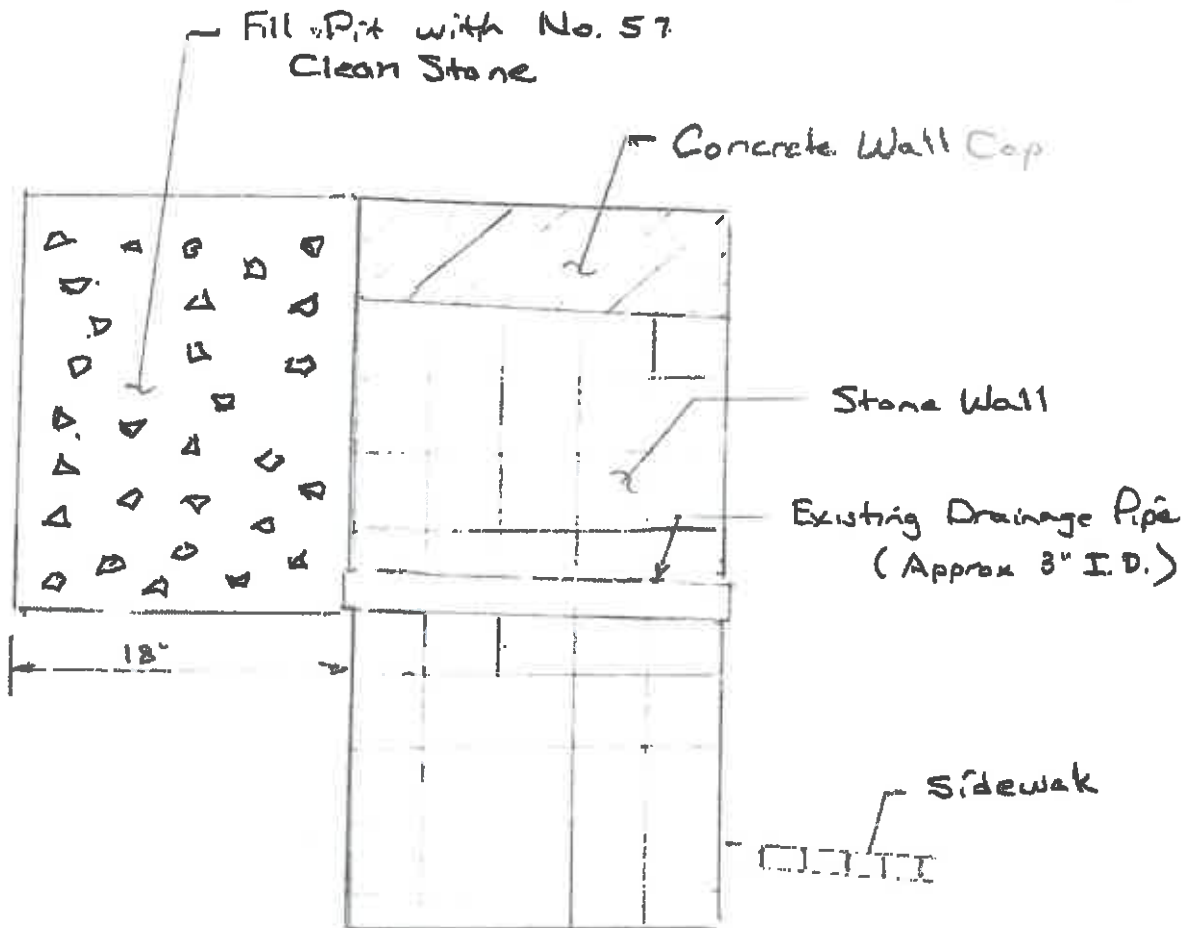 Fill Pit with No. 57
Clean Stone
Concrete Wall Cap
Stone Wall
Existing Drainage Pipe
(Approx 3" I.D.)
18"
Sidewak